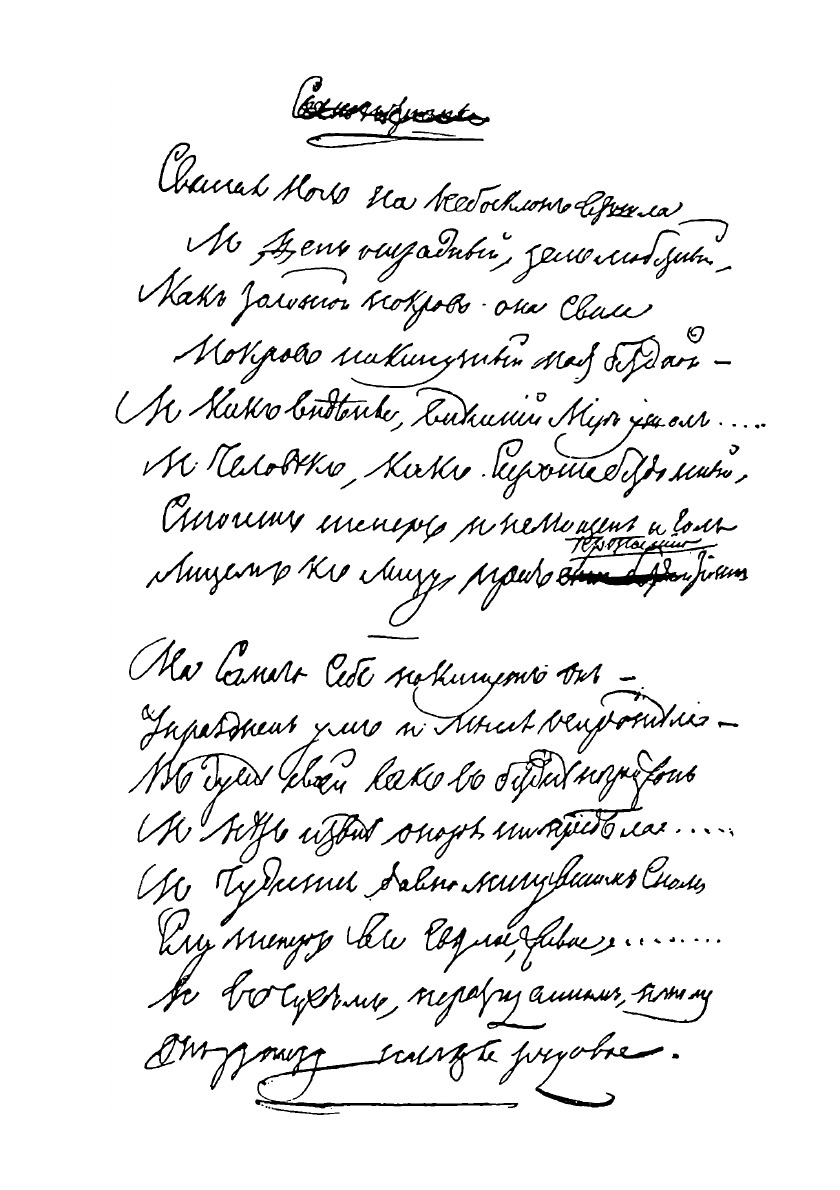 Святая ночь на небосклонъ взошла
И день отрадный, день любезный,
Какъ золотой покровъ она свила
Покровъ накинутый надъ бездной –
И какъ видѣнье, внѣшній міръ ушолъ.....
И Человѣкъ, какъ Сирота бездомный,
Стоитъ теперь и немощенъ и голъ
пропастію
Лицемъ къ лицу, предъ темной

На Самаго Себя покинутъ онъ –
Упраздненъ умъ и мысль осиротѣла –
Въ душѣ своей какъ въ безднѣ погружонъ
И нѣтъ извнѣ опоры ни предѣла.....
И Чудится давно минувшимъ сномъ
Ему теперь все свѣтлое, живое.........
И въ чуждомъ, неразгаданномъ, ночномъ
Онъ узнаетъ наслѣдье родовое.